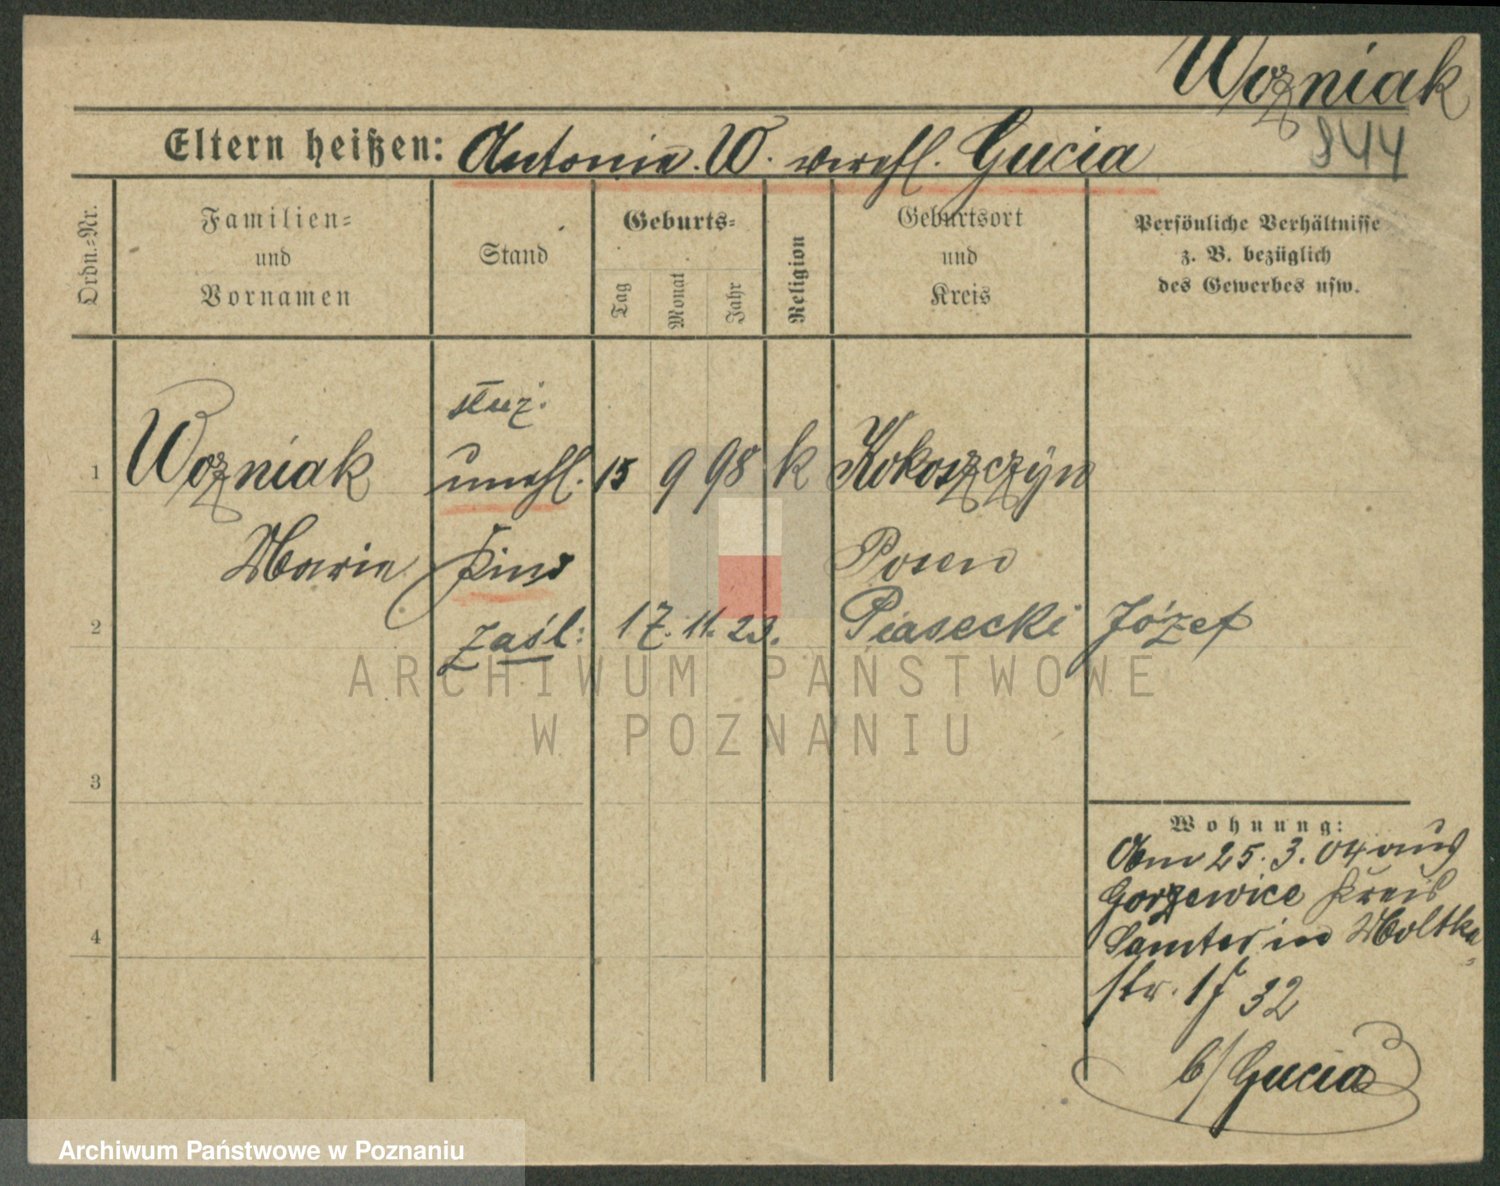 Wozniak
844
Eltern heißen: Antonie. W. verehl. Gucia
Ordn.=Nr.
Familien=
und
Vornamen
Stand
Geburts=
Tag
Monat
Jahr
Religion
Geburtsort
und
Kreis
Persönliche Verhältnisse
z. B. bezüglich
des Gewerbes usw.
służ.
1 Wozniak unehl. 15 9 98 k Kokoszczyn
Marie Kind Posen
2 zaśl: 17. 11. 23. Piasecki Józef
ARCHIWUM PAŃSTWOWE
W POZNANIU
3
Wohnung:
Am 25. 3. 04 aus
Gorzewice Kreis
4
Samter in Moltke
str. 32
b/ Gucia
Archiwum Państwowe w Poznaniu